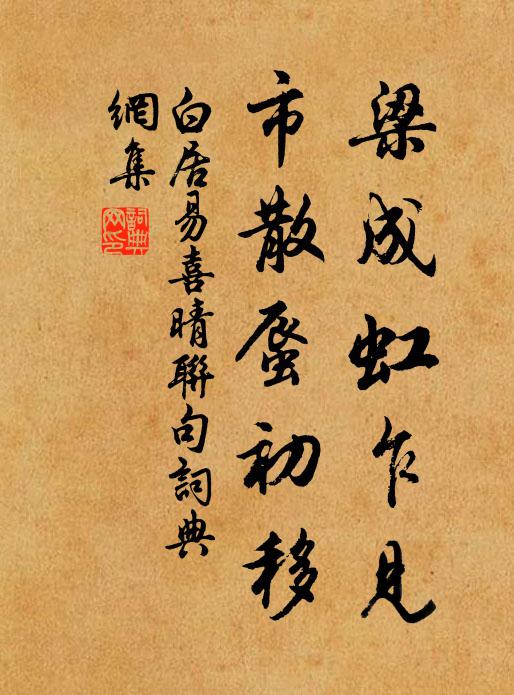 梁成虹乍見
市散蜃初移
白居易喜晴聯句詞典
網集
詞典網印